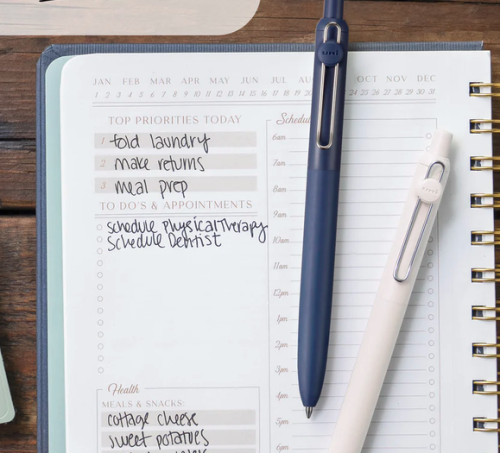 JAN FEB MAR APR MAY JUN JUL AUG OCT NOV DEC
1 2 3 4 5 6 7 8 9 10 11 12 13 14 15 16 24 25 26 27 28 29 30 31
TOP PRIORITIES TODAY
1 fold laundry
2 make returns
3 meal prep
TO DO'S & APPOINTMENTS
schedule Physical Therapy
Schedule Dentist
Health
MEALS & SNACKS:
cottage cheese
sweet potatoes
6am
7am
8am
9am
10am
11am
12pm
1pm
2pm
3pm
4pm
5pm
uni
uni